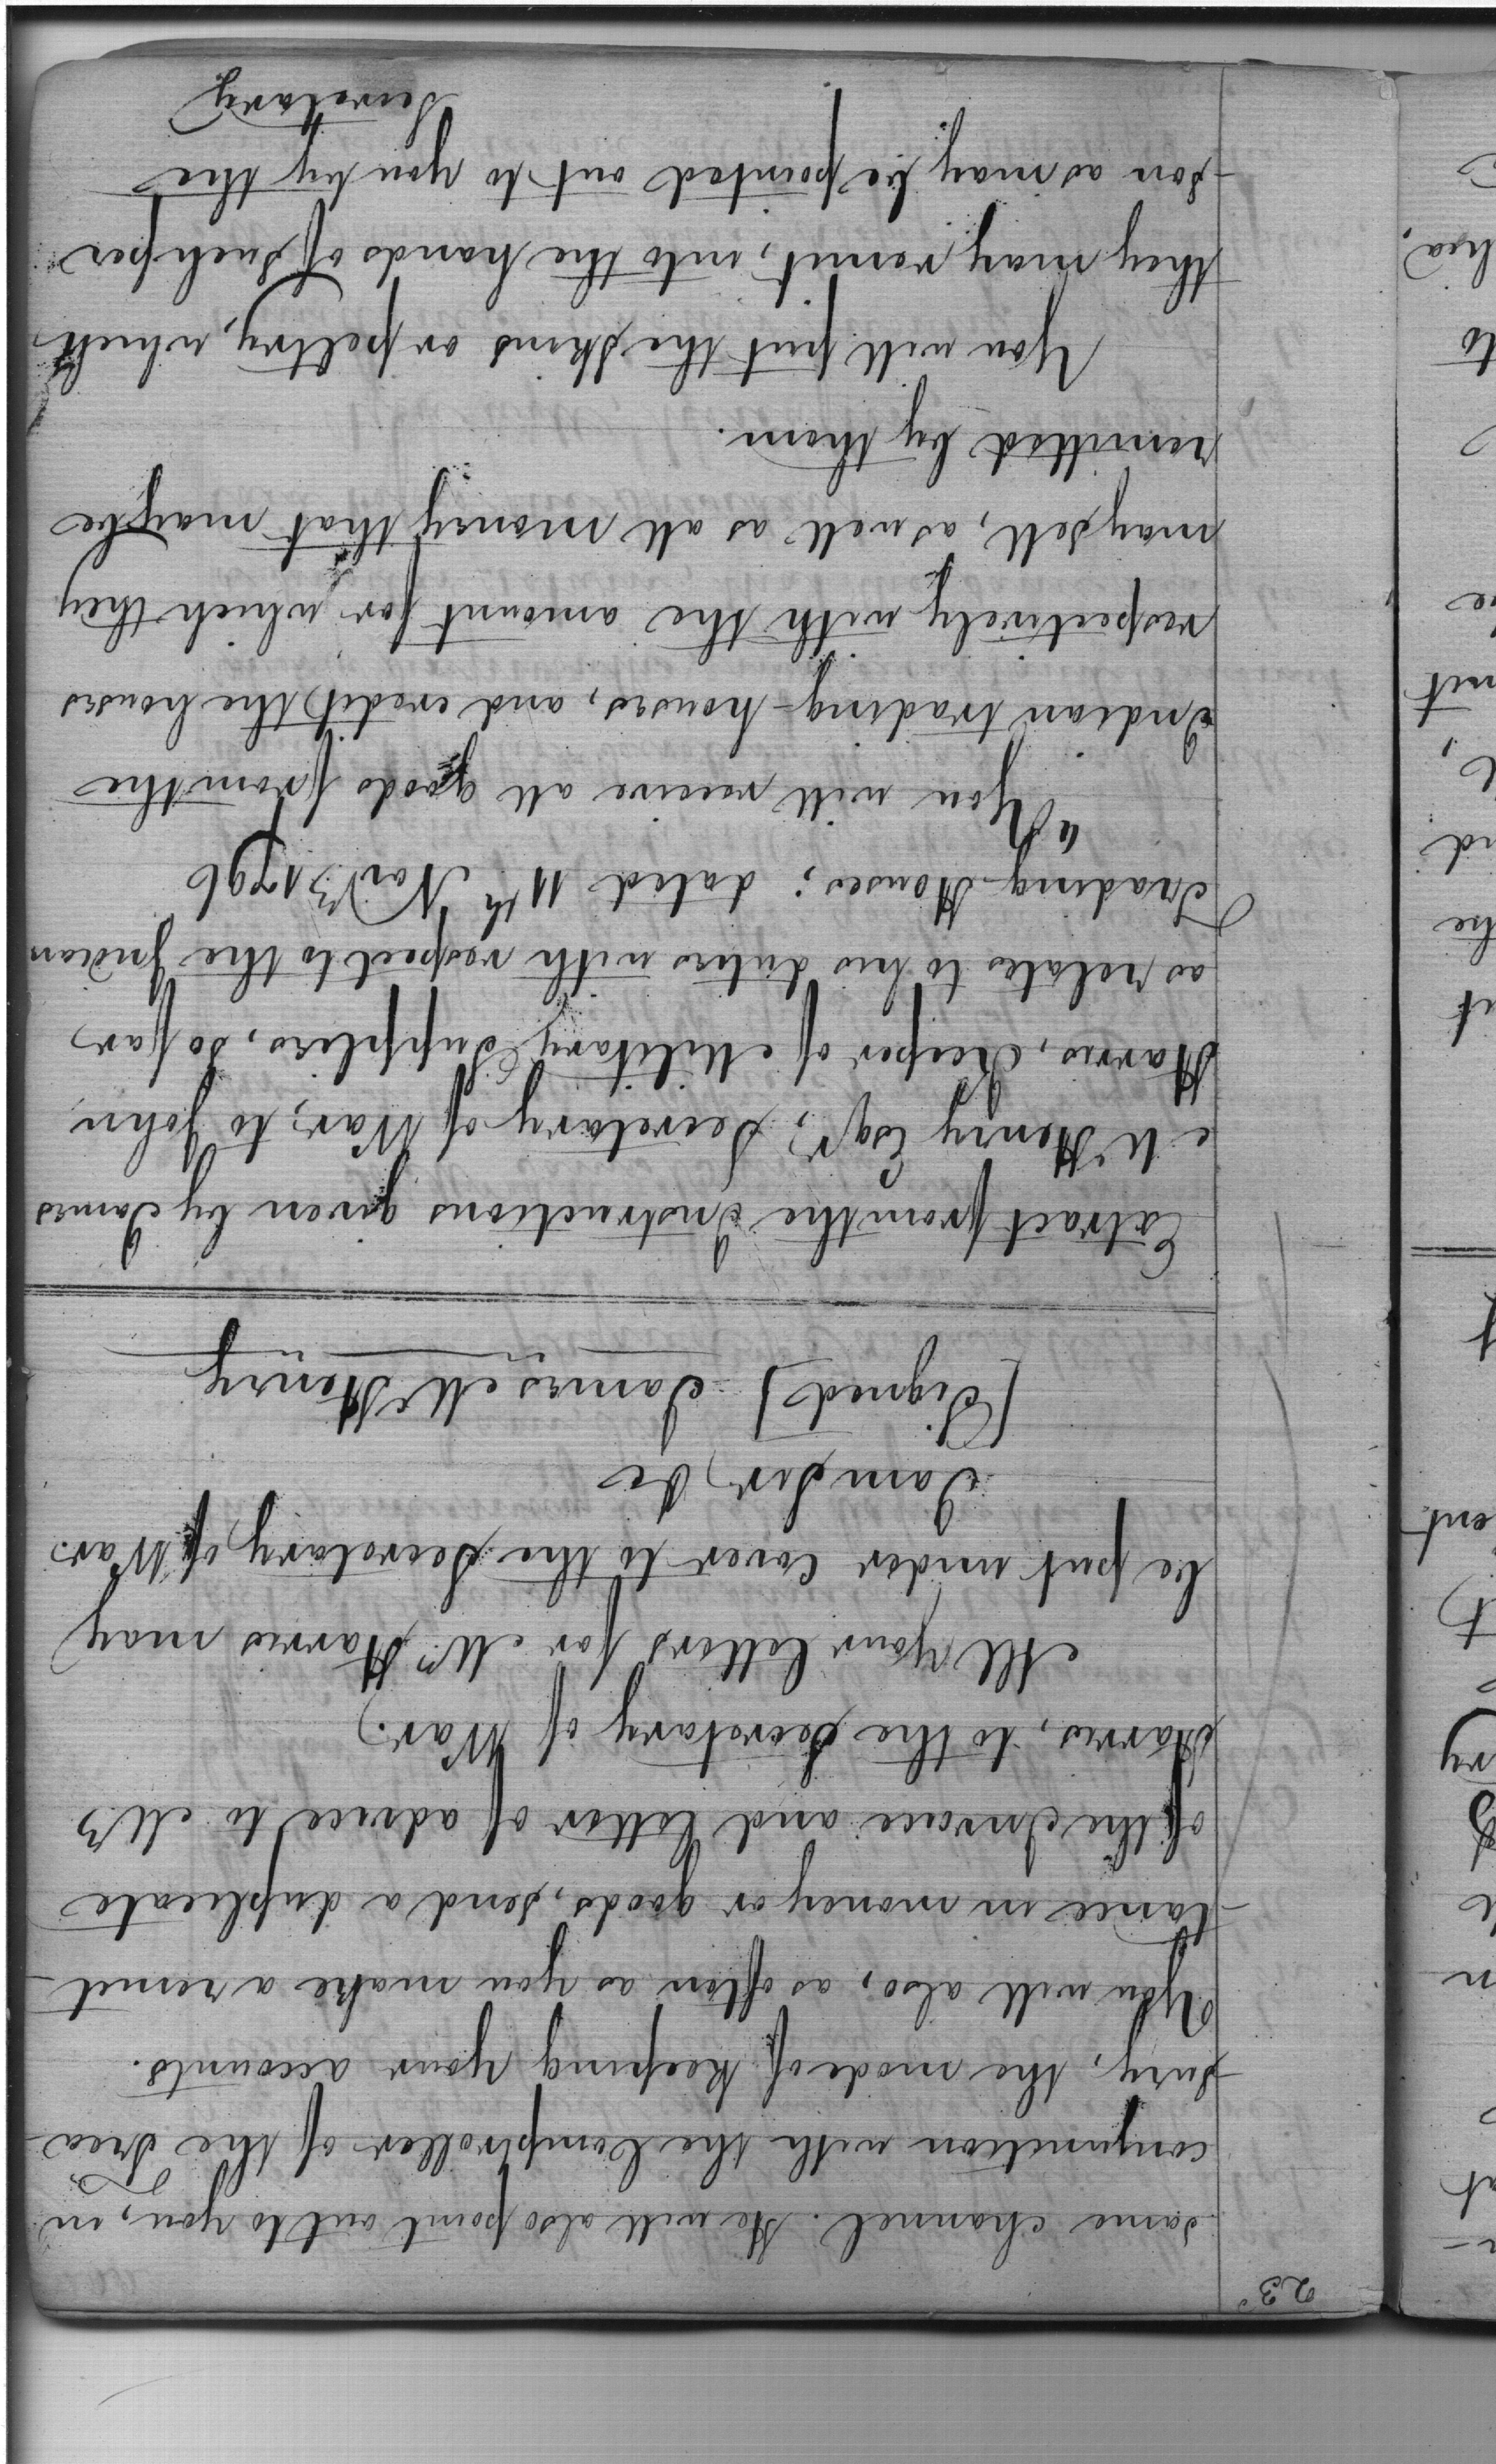 23
same channel. He will also point out to you, in
conjunction with the Comptroller of the Trea-
-sury, the mode of keeping your accounts.
You will also, as often as you make a remit-
-tance in money or goods, send a duplicate
of the Invoice and letter of advice to Mr
Harris, to the Secretary of War.
All your letters for Mr Harris may
be put under Cover to the Secretary of War.
I am Sir, &c
[Signed] James McHenry
Extract from the Instructions given by James
McHenry Esqr, Secretary of War, to John
Harris, Keeper of Military Supplies, so far
as relates to his duties with respect to the Indian
Trading Houses; dated 11th Novr 1796
"You will receive all goods from the
Indian trading-houses, and credit the houses
respectively with the amount for which they
may sell, as well as all money that may be
remitted by them.
You will put the skins or peltry, which
they may remit, into the hands of such per
-son as may be pointed out to you by the
Secretary